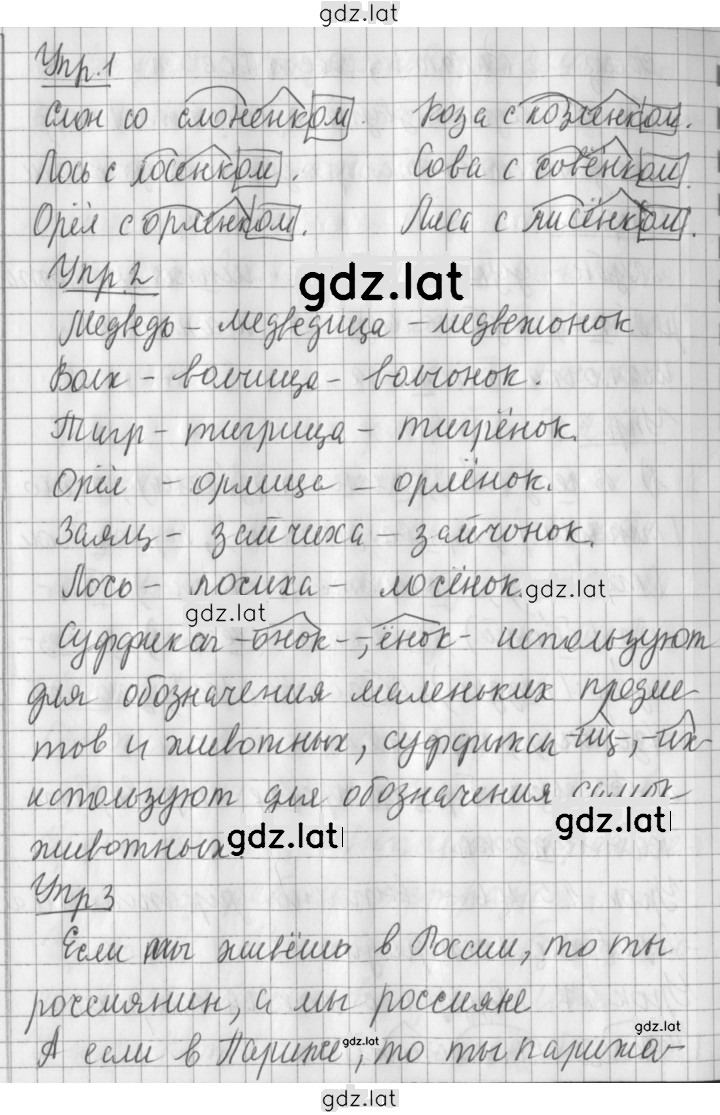 gdz.lat
Упр.1
Слон со слонёнком. Коза с козлёнком.
Лось с лосёнком. Сова с совёнком.
Орёл с орлёнком. Лиса с лисёнком.
Упр.2
gdz.lat
Медведь - медведица - медвежонок
Волк - волчица - волчонок.
Тигр - тигрица - тигрёнок.
Орёл - орлица - орлёнок.
Заяц - зайчиха - зайчонок.
Лось - лосиха - лосёнок. gdz.lat
gdz.lat
Суффиксы -онок-, -ёнок- используют
для обозначения маленьких предме-
тов и животных, суффиксы -иц-, -их-
используют для обозначения самок
животных.
gdz.lat gdz.lat
Упр 3
Если ты живёшь в России, то ты
россиянин, а мы россияне
gdz.lat
А если в Париже, то ты парижа-
gdz.lat
gdz.lat